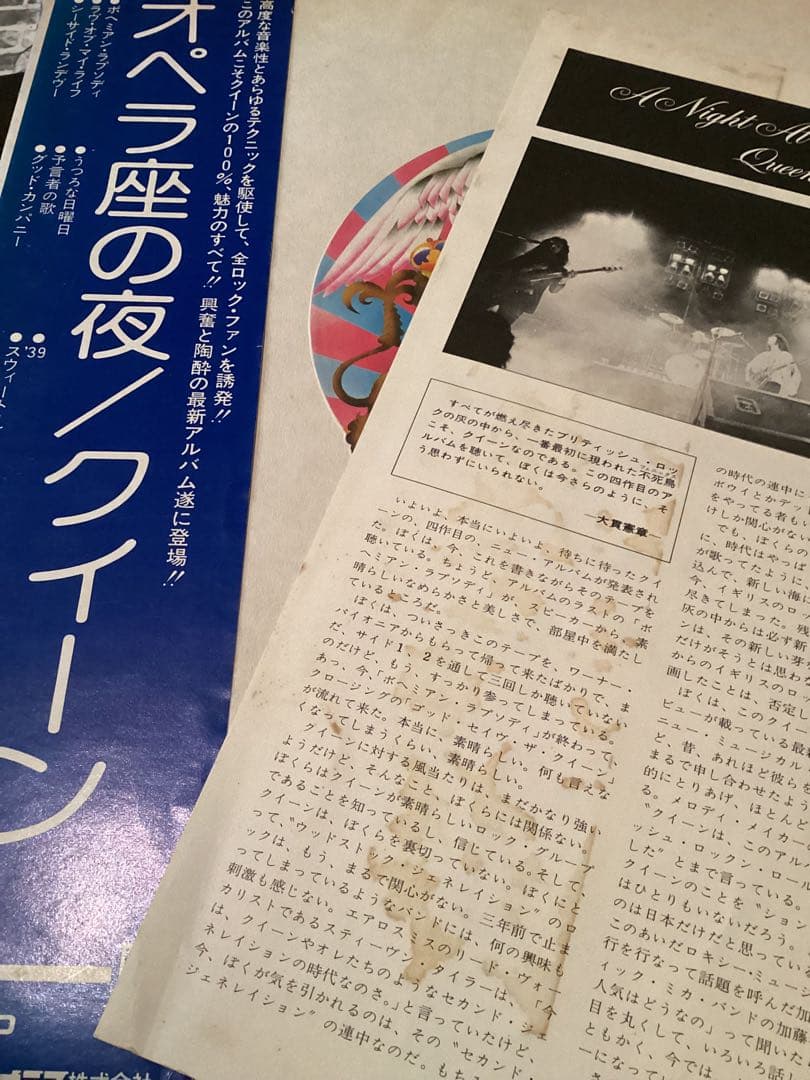 高度な音楽性とあらゆるテクニックを駆使して、全ロック・ファンを誘発!!
このアルバムこそクイーンの100%、魅力のすべて!! 興奮と陶酔の最新アルバム遂に登場!!
オペラ座の夜/クイーン
●ボヘミアン・ラプソディ
●ラヴ・オブ・マイ・ライフ
●シーサイド・ランデヴー
●うつろな日曜日
●予言者の歌
●グッド・カンパニー
●'39
●スウィート
株式会社
A Night At
Queen
すべてが燃え尽きたブリティッシュ・ロッ
クの灰の中から、一番最初に現われた不死鳥
こそ、クイーンなのである。この四作目のア
ルバムを聴いて、ぼくは今さらのように、そ
う思わずにいられない。
—大貫憲章—
いよいよ、本当にいよいよ、待ちに待ったクイ
ーンの、四作目の、ニュー・アルバムが発表され
た。ぼくは、今、これを書きながらそのテープを
聴いている。ちょうど、アルバムのラストの「ボ
ヘミアン・ラプソディ」が、スピーカーから、素
晴らしいなめらかさと美しさで、部屋中を満たし
ているところだ。
ぼくは、ついさっきこのテープを、ワーナー・
パイオニアからもらって帰って来たばかりで、ま
だ、サイド1、2を通して三回しか聴いていない
のだけど、もう、すっかり参ってしまっている。
あっ、今、「ボヘミアン・ラプソディ」が終わって、
クロージングの「ゴッド・セイヴ・ザ・クイーン」
が流れて来た。本当に、素晴らしい。何も言えな
くなってしまうくらい、素晴らしい。
クイーンに対する風当たりは、まだかなり強い
ようだけど、そんなこと、ぼくらには関係ない。
ぼくらはクイーンが素晴らしいロック・グループ
であることを知っているし、信じている。そして、
クイーンは、ぼくらを裏切っていない。ぼくにと
って、〝ウッドストック・ジェネレイション〟のロ
ックは、もう、まるで関心がない。三年前で止ま
ってしまっているようなバンドには、何の興味も
刺激も感じない。エアロスミスのリード・ヴォー
カリストであるスティーヴン・タイラーは、「今
は、クイーンやオレたちのようなセカンド・ジェ
ネレイションの時代なのさ。」と言っていたけど、
今、ぼくが気を引かれるのは、その〝セカンド・
ジェネレイション〟の連中なのだ。もち
の時代の連中に
ボウイとかデッ
をやってる者も
けしか関心がない
でも、ぼくらの
に、時代はやっぱ
が歌ってたように、
込んで、新しい海に
今、イギリスのロッ
尽きてしまった。残
灰の中からは必ず新
ンは、その新しい芽を
だけがそうとは思わな
からのイギリスのロッ
画したことは、否定し
ぼくは、このクイー
ビューが載っている最新
ニュー・ミュージカル・
ど、昔、あれほど彼らを
まるで申し合わせたよう
的にとりあげ、ほとんど
る。メロディ・メイカー
〝クイーンは、このアルバ
ッシュ・ロックン・ロール
した〟とまで言っている。
クイーンのことを〝ション
はひとりもいないだろう。
のは日本だけだと思ってい
このあいだロキシー・ミュー
行を行なって話題を呼んだ加
ィック・ミカ・バンドの加藤
人気はどうなの」って聞いた
目を丸くして、いろいろ話し
ともかく、今では
ーになってい